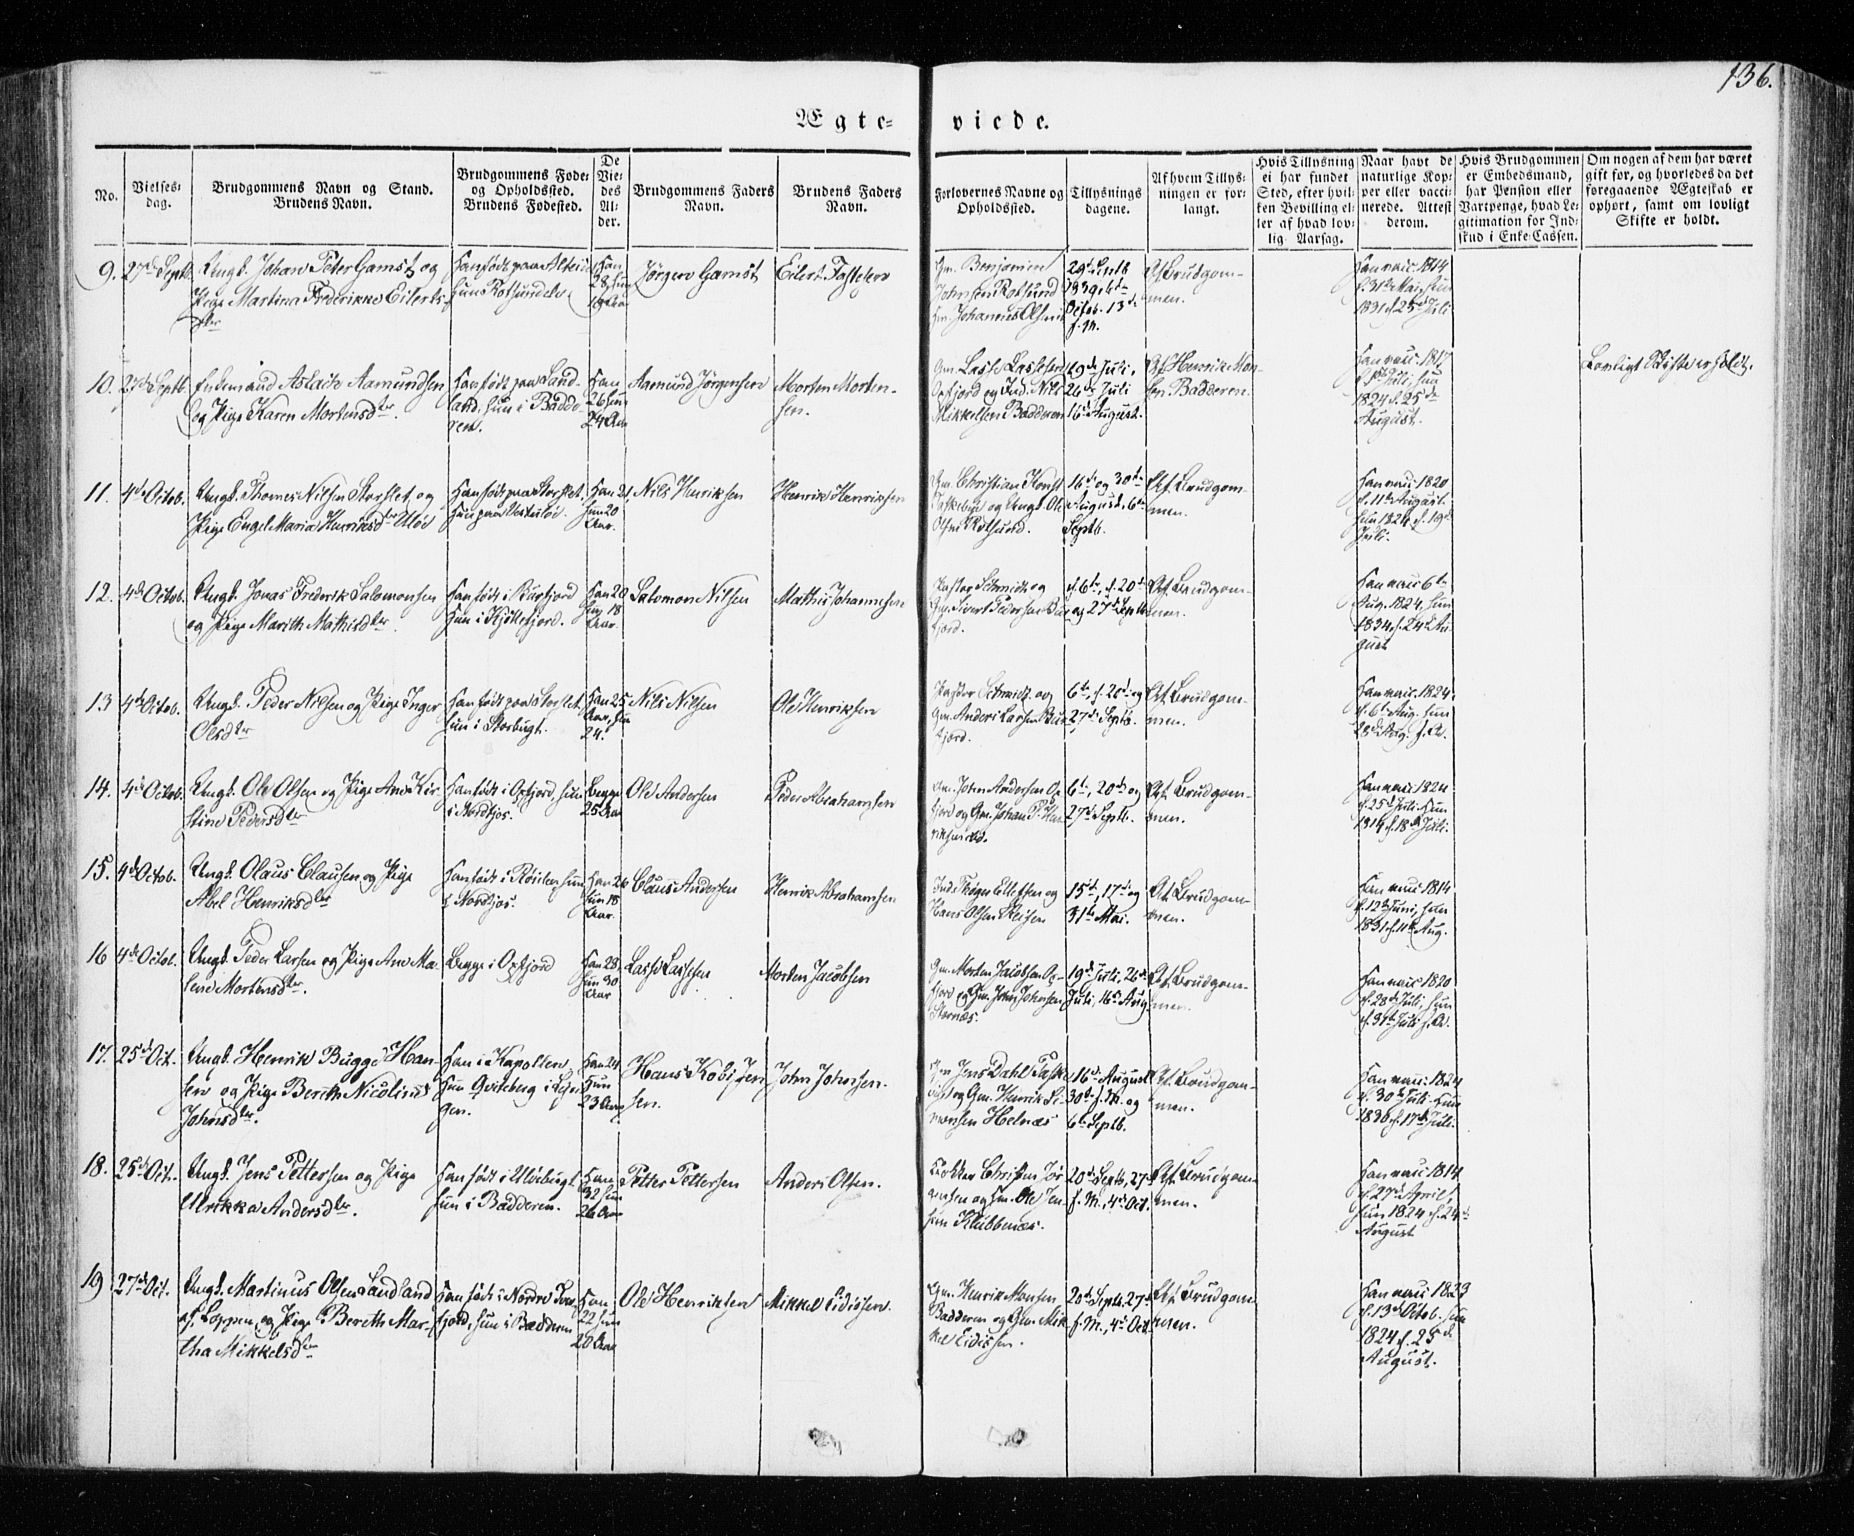 136.
Ægte-
viede.
No.
Vielses-
dag.
Brudgommens Navn og Stand.
Brudens Navn.
Brudgommens Føde-
og Opholdssted.
Brudens Fødested.
De
Vie-
des
Al-
der.
Brudgommens Faders
Navn.
Brudens Faders
Navn.
Forlovernes Navne og
Opholdssted.
Tillysnings
dagene.
Af hvem Tillys-
ningen er for-
langt.
Hvis Tillysning
ei har fundet
Sted, efter hvil-
ken Bevilling el-
ler af hvad lov-
lig Aarsag.
Naar havt de
naturlige Kop-
per eller vacci-
nerede. Attest
derom.
Hvis Brudgommen
er Embedsmand,
har Pension eller
Vartpenge, hvad Le-
gitimation for Ind-
skud i Enke-Cassen.
Om nogen af dem har været
gift før, og hvorledes da det
foregaaende Ægteskab er
ophørt, samt om lovligt
Skifte er holdt.
9. 27de Septb.
Ungk. Johan Peter Gamst og
Pige Martina Frederikke Eilerts-
dter
Han født paa
Hun Rotsundelv
Han
28, hun
Jørgen Gamst
Eilert
Gm. Benjamin
Johnsen Rotsund
Gm. Johannes Olsen
29de Septb
1839, 6te
Octob. 13de
s. M.
Af Brudgom-
men.
Han vacc. 1814
d. 31te Mai, hun
1831 d. 25de Juli.
10. 27de Septb
Enkemand Aslach Aamundsen
og Pige Karen Mortensdter.
Han født paa Sand-
land, hun i Badde-
ren.
Han
26 hun
24 Aar
Aamund Jørgensen
Morten Morten-
sen.
Gm. Lasse Lassesen
Oxfjord og Ind. Nils
Mikkelsen Badderen
19de Juli,
26de Juli
16de August.
Af Henrik Mon-
sen Badderen.
Han vacc. 1817
Juli, hun
1824 d. 25de
August.
Lovligt Skifte er holdt.
11. 4de Octob.
Ungk. Thomas Nilsen Storslet og
Pige Engel Maria Henriksdter Uløe
Han født paa Storslet,
Hun paa
Han 21,
hun 20
Aar.
Nils Henriksen
Henrik Henriksen
Gm. Christian
og Ungk. Ole
Olsen Rotsund.
16de og 30de
August, 6te
Septb.
Af Brudgom-
men.
Han vacc. 1820
d. 11te August.
Hun 1824 d. 19de
Juli.
12. 4de Octob.
Ungk. Jonas Frederik Salomonsen
og Pige Marith Mathisdter.
Han født i Burfjord
Hun i Kjøllefjord.
Han 20
hun 18
Aar.
Salomon Nilsen
Mathis Johannesen
Pastor Schmidt og
Gm. Sivert Pedersen Bur-
fjord.
d. 6te, d. 20de
og 27de Septb
Af Brudgom-
men.
Han vacc. 6te
Aug. 1824, hun
1834 d. 24de Au-
gust
13 4de Octob.
Ungk. Peder Nilsen og Pige Inger
Olsdter
Han født paa Storslet,
hun i Storbugt.
Han 25
Aar, hun
24.
Nils Nilsen
Ole Henriksen
Pastor Schmidt og
Gm. Anders Larsen Bur-
fjord.
6te, d. 20de og
27de Septb.
Af Brudgom-
men.
Han vacc. 1824
d. 6te Aug. hun
28de Aug. s. A.
14. 4de Octob.
Ungk. Ole Olsen og Pige Ane Kir-
stine Pedersdter
Han født i Oxfjord, hun
i Nordkjos.
Begge
25 Aar
Ole Andersen
Peder Abrahamsen
Gm. John Andersen Ox-
fjord og Gm. Johan P. Hen-
riksen
6te, 20de og
27de Septb.
Af Brudgom-
men.
Han vacc. 1824
d. 25de Juli. Hun
1814 d. 18de Juli.
15. 4de Octob.
Ungk. Olaus Clausen og Pige
Abel Henriksdter
Han født i
i Nordkjos.
Han 26
hun 18
Aar.
Claus Andersen
Henrik Abrahamsen
Ind. Thøger Ellefsen og
Hans Olsen Reisen
15de, 17de og
31te Mai.
Af Brudgom-
men.
Han vacc. 1814
d. 12de Juni, hun
1831 d. 11te Aug.
16 4de Octob.
Ungk. Peder Larsen og Pige Ane Ma-
lene Mortensdter.
Begge i Oxfjord
Han 28,
hun 30
Aar
Lasse Lassesen
Morten Jacobsen
Gm. Morten Jacobsen Ox-
fjord og Gm. John Johnsen
19de Juli, 26de
Juli, 16de Aug.
Af Brudgom-
men.
Han vacc. 1820
d. 28de Juli, hun
d. 31te Juli s. A.
17. 25de Oct.
Ungk. Henrik Bugge Han-
sen og Pige Berith Nicoline
Johnsdter.
Han i
Hun Qviteberg i Lyn-
gen.
Han 24
Hun
23 Aar
Hans Jen-
sen.
John Johnsen.
Gm Jens Dahl
og Gm. Henrik Si-
monsen Helnæs
16de August
30te s. M. og
6te Septb.
Af Brudgom-
men.
Han vacc. 1824
d. 30te Juli. Hun
1836 d. 17de Juli.
18. 25de Oct.
Ungk. Jens Pettersen og Pige
Ulrikka Andersdter.
Han født i Uløebugt
hun i Badderen.
Han
32 hun
26 Aar
Petter Pettersen
Anders Olsen.
Christen Jør-
gensen og Gm. Ole Jen-
sen Klubbenæs.
20de Septb, 27de
s. M., 4de Oct.
Af Brudgom-
men.
Han vacc. 1814
d. 27de April,
hun 1824 d. 24de
August
19 27de Oct.
Ungk. Martinus Olsen Sandland
af Loppen og Pige Berith Mar-
tha Mikkelsdter
Han født i Nordre
fjord, hun i Badderen
Han
22 hun
20 Aar
Ole Henriksen
Mikkel Eidissen.
Gm. Henrik Monsen
Badderen og Gm. Mik-
kel Eidissen.
20de Septb, 27de
s. M., 4de Oct.
Af Brudgom-
men.
Han vacc. 1823
d. 13de Octob. hun
1824 d. 25de
August.